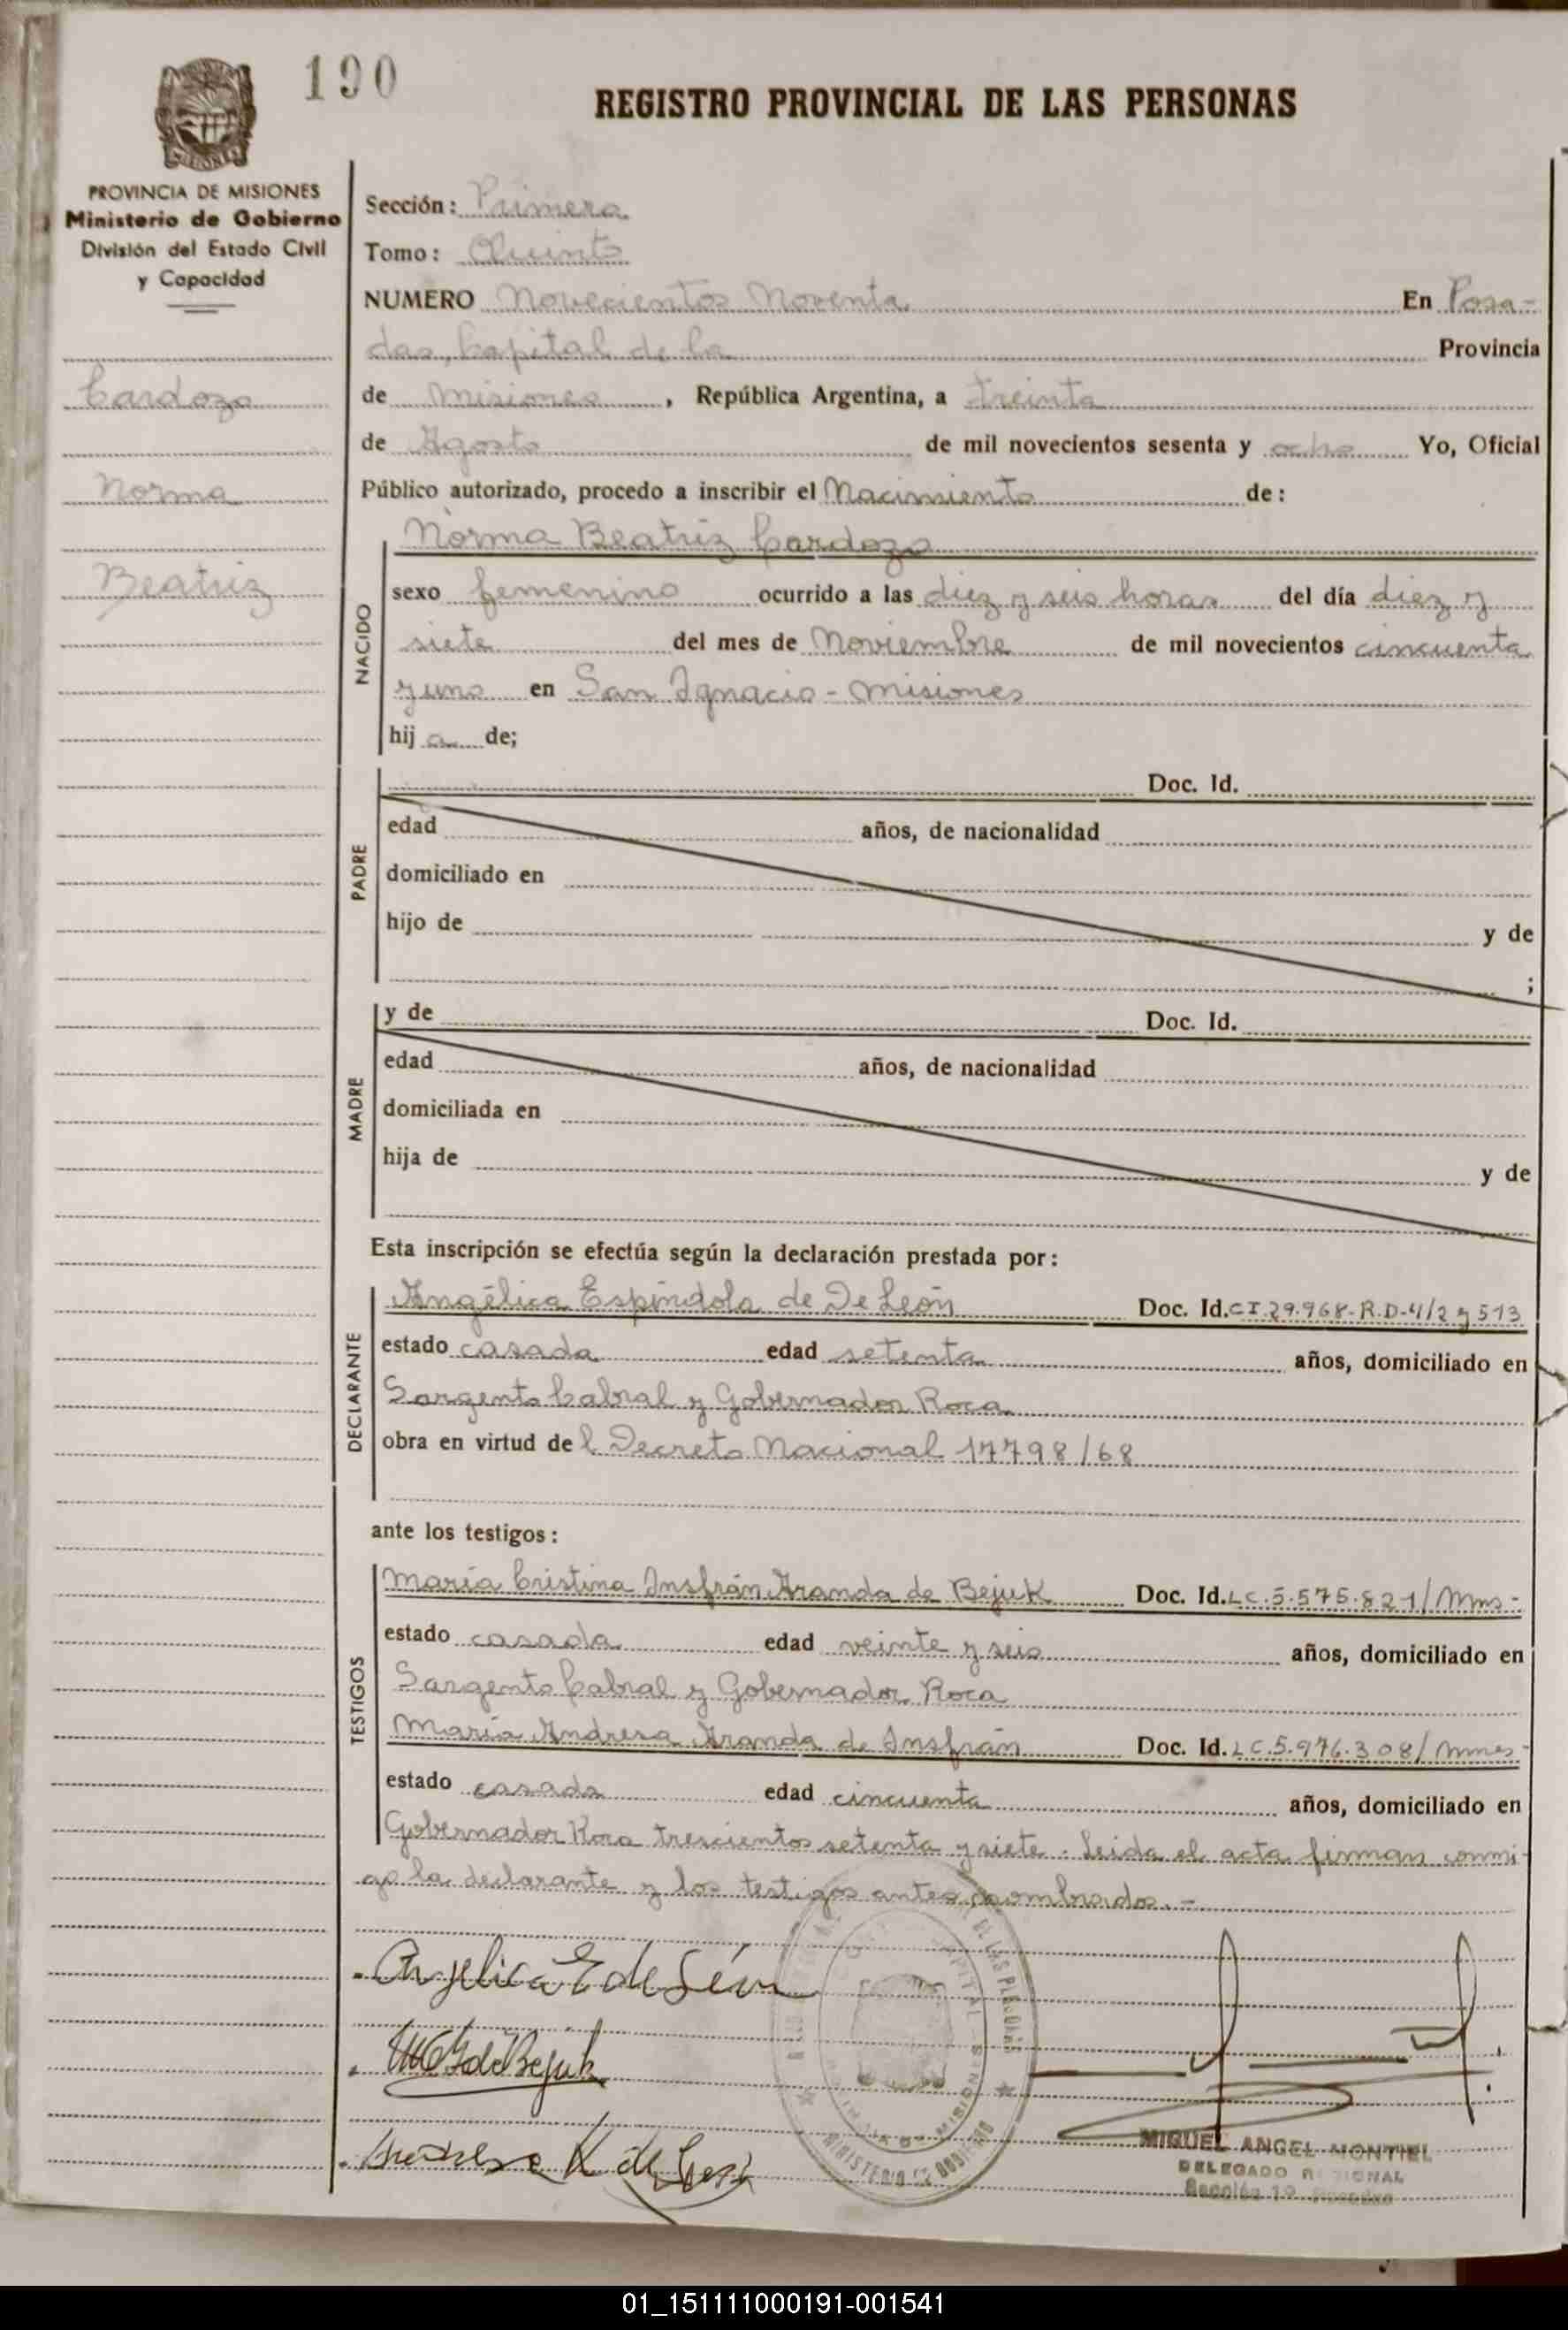 190
REGISTRO PROVINCIAL DE LAS PERSONAS
PROVINCIA DE MISIONES
Ministerio de Gobierno
División del Estado Civil
y Capacidad
Cardozo
Norma
Beatriz
Sección: Primera
Tomo: Quinto
NUMERO Novecientos Noventa En Posa-
das, Capital de la Provincia
de Misiones, República Argentina, a treinta
de Agosto de mil novecientos sesenta y ocho Yo, Oficial
Público autorizado, procedo a inscribir el Nacimiento de:
NACIDO
Norma Beatriz Cardozo
sexo femenino ocurrido a las diez y seis horas del día diez y
siete del mes de Noviembre de mil novecientos cincuenta
y uno en San Ignacio - Misiones
hij a de;
PADRE
Doc. Id.
edad años, de nacionalidad
domiciliado en
hijo de y de
;
MADRE
y de Doc. Id.
edad años, de nacionalidad
domiciliada en
hija de y de
Esta inscripción se efectúa según la declaración prestada por:
DECLARANTE
Angélica Espíndola de De León Doc. Id. CI.29.968-R.D-4/2 y 513
estado casada edad setenta años, domiciliado en
Sargento Cabral y Gobernador Roca
obra en virtud de l Decreto Nacional 17798/68
ante los testigos:
TESTIGOS
María Cristina Insfrán Aranda de Bejuk Doc. Id. LC.5.575.821/Mms-
estado casada edad veinte y seis años, domiciliado en
Sargento Cabral y Gobernador Roca
María Andresa Aranda de Insfrán Doc. Id. LC.5.976.308/Mmes-
estado casada edad cincuenta años, domiciliado en
Gobernador Roca trescientos setenta y siete. Leida el acta firman conmi-
go la declarante y los testigos antes nombrados.-
Angelica E de León
de Bejuk
MINISTERIO DE GOBIERNO
MIGUEL ANGEL MONTIEL
DELEGADO REGIONAL
Sección 1ª Posadas
01_151111000191-001541